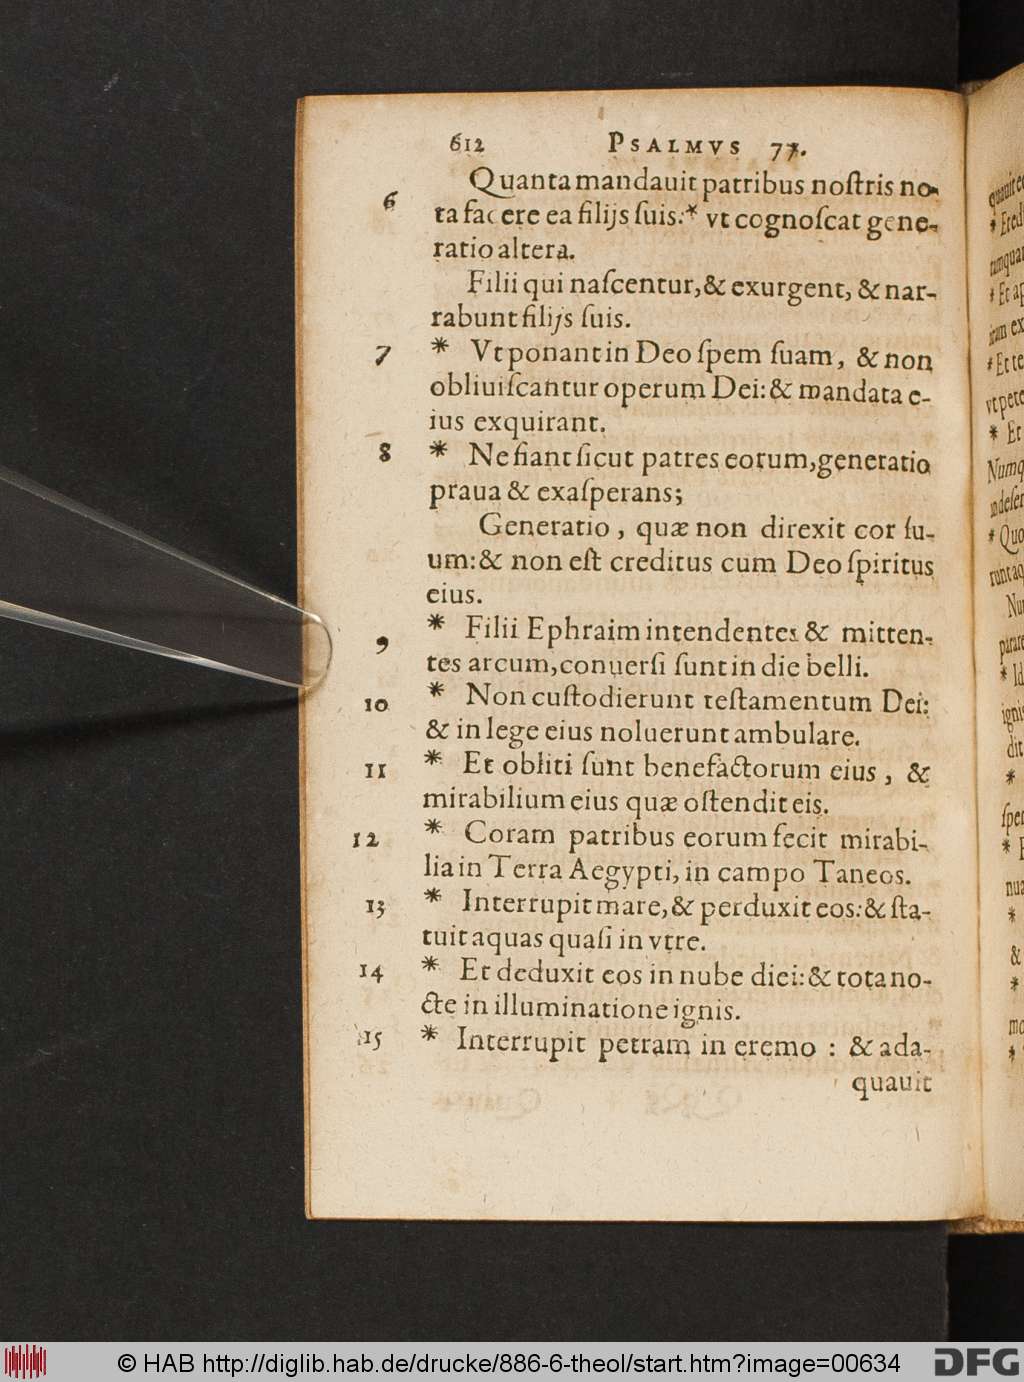 612 PSALMVS 77.
Quanta mandauit patribus noſtris no-
6 ta facere ea filijs ſuis:* vt cognoſcat gene-
ratio altera.
Filii qui naſcentur, & exurgent, & nar-
rabunt filijs ſuis.
7 * Vt ponant in Deo ſpem ſuam, & non
obliuiſcantur operum Dei: & mandata e-
ius exquirant.
8 * Ne fiant ſicut patres eorum, generatio
praua & exaſperans;
Generatio, quæ non direxit cor ſu-
um: & non eſt creditus cum Deo ſpiritus
eius.
9 * Filii Ephraim intendentes & mitten-
tes arcum, conuerſi ſunt in die belli.
10 * Non cuſtodierunt teſtamentum Dei:
& in lege eius noluerunt ambulare.
11 * Et obliti ſunt benefactorum eius, &
mirabilium eius quæ oſtendit eis.
12 * Coram patribus eorum fecit mirabi-
lia in Terra Aegypti, in campo Taneos.
13 * Interrupit mare, & perduxit eos: & ſta-
tuit aquas quaſi in vtre.
14 * Et deduxit eos in nube diei: & tota no-
cte in illuminatione ignis.
15 * Interrupit petram in eremo : & ada-
quauit
© HAB http://diglib.hab.de/drucke/886-6-theol/start.htm?image=00634
DFG